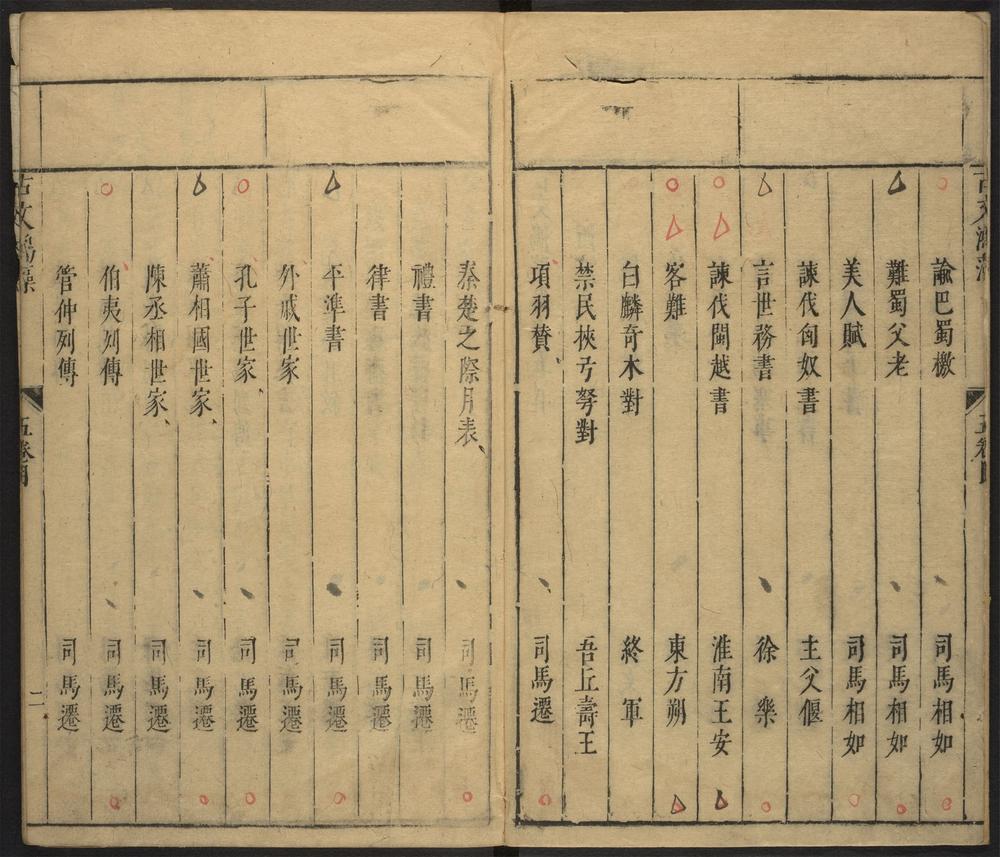 諭巴蜀檄 司馬相如
難蜀父老 司馬相如
美人賦 司馬相如
諫伐匈奴書 主父偃
言世務書 徐樂
諫伐閩越書 淮南王安
客難 東方朔
白麟奇木對 終軍
禁民挾弓弩對 吾丘壽王
項羽贊 司馬遷
秦楚之際月表 司馬遷
禮書 司馬遷
律書 司馬遷
平準書 司馬遷
外戚世家 司馬遷
孔子世家 司馬遷
蕭相國世家 司馬遷
陳丞相世家 司馬遷
伯夷列傳 司馬遷
管仲列傳 司馬遷
二